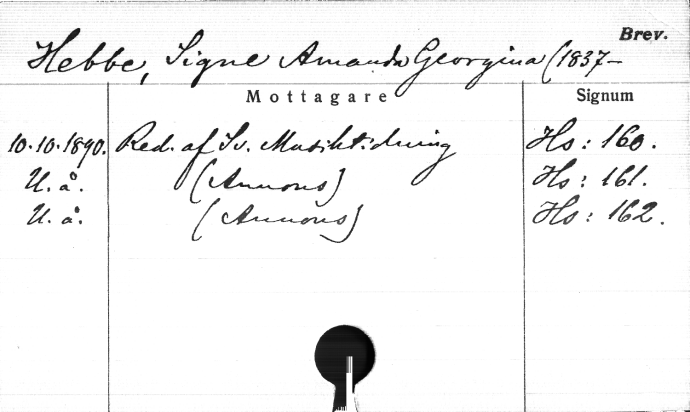 Brev.
Hebbe, Signe Amanda Georgina (1837–
Mottagare Signum
10.10.1890. Red. af Sv. Musiktidning Hs: 160.
U. å. (Annons) Hs: 161.
U. å. (Annons) Hs: 162.